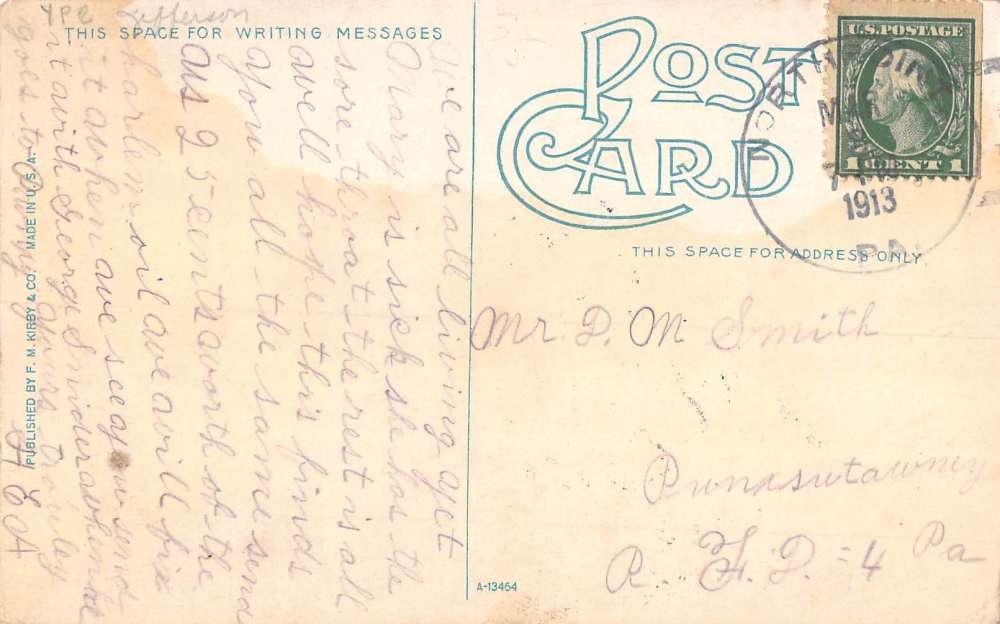 YPC Jefferson
THIS SPACE FOR WRITING MESSAGES
We are all living yet
Mary is sick she has the
sore throat the rest is all
well hope this finds
you all the same send
us 25 cents worth of the
harlem oil we will fix
it when we see you send
it with George Snider when he
goes to
yours truly
H C A
PUBLISHED BY F. M. KIRBY & CO. MADE IN U. S. A.
POST
CARD
THIS SPACE FOR ADDRESS ONLY
U.S. POSTAGE
1 CENT 1
NORTH
MAR
1913
PA.
Mr. D. M Smith
Punxsutawney
R. F. D. = 4 Pa
A-13464